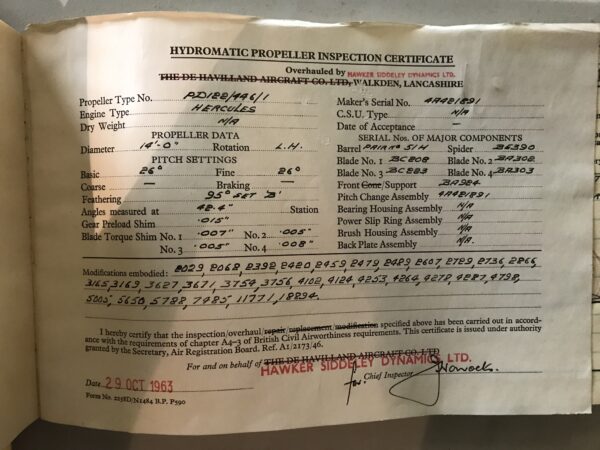 HYDROMATIC PROPELLER INSPECTION CERTIFICATE
Overhauled by HAWKER SIDDELEY DYNAMICS LTD.
THE DE HAVILLAND AIRCRAFT CO. LTD, WALKDEN, LANCASHIRE
Propeller Type No. PD188/446/1
Engine Type HERCULES
Dry Weight N/A
PROPELLER DATA
Diameter 14'-0" Rotation L.H.
PITCH SETTINGS
Basic 26° Fine 26°
Coarse — Braking —
Feathering 95° SET 'B'
Angles measured at 42.4" Station
Gear Preload Shim .015"
Blade Torque Shim No. 1 .007" No. 2 .005"
No. 3 .005" No. 4 .008"
Maker's Serial No. 4A421891
C.S.U. Type N/A
Date of Acceptance —
SERIAL NOS. OF MAJOR COMPONENTS
Barrel PAIR No 51H Spider BE390
Blade No. 1 BC208 Blade No. 2 BA308
Blade No. 3 BC283 Blade No. 4 BA303
Front Cone/Support BA984
Pitch Change Assembly 4A421891
Bearing Housing Assembly N/A
Power Slip Ring Assembly N/A
Brush Housing Assembly N/A
Back Plate Assembly N/A.
Modifications embodied: 2029, 2068, 2392, 2420, 2459, 2479, 2489, 2607, 2729, 2736, 2866,
3165, 3169, 3627, 3671, 3754, 3756, 4102, 4124, 4253, 4264, 4272, 4287, 4792,
5005, 5650, 5788, 7485, 11771, 18894.
I hereby certify that the inspection/overhaul/repair/replacement/modification specified above has been carried out in accord-
ance with the requirements of chapter A4-3 of British Civil Airworthiness requirements. This certificate is issued under authority
granted by the Secretary, Air Registration Board. Ref. A1/2173/46.
For and on behalf of THE DE HAVILLAND AIRCRAFT CO. LTD
HAWKER SIDDELEY DYNAMICS LTD.
Date 29 OCT 1963
for: Chief Inspector
Form No. 2258D/N1484 B.P. P590